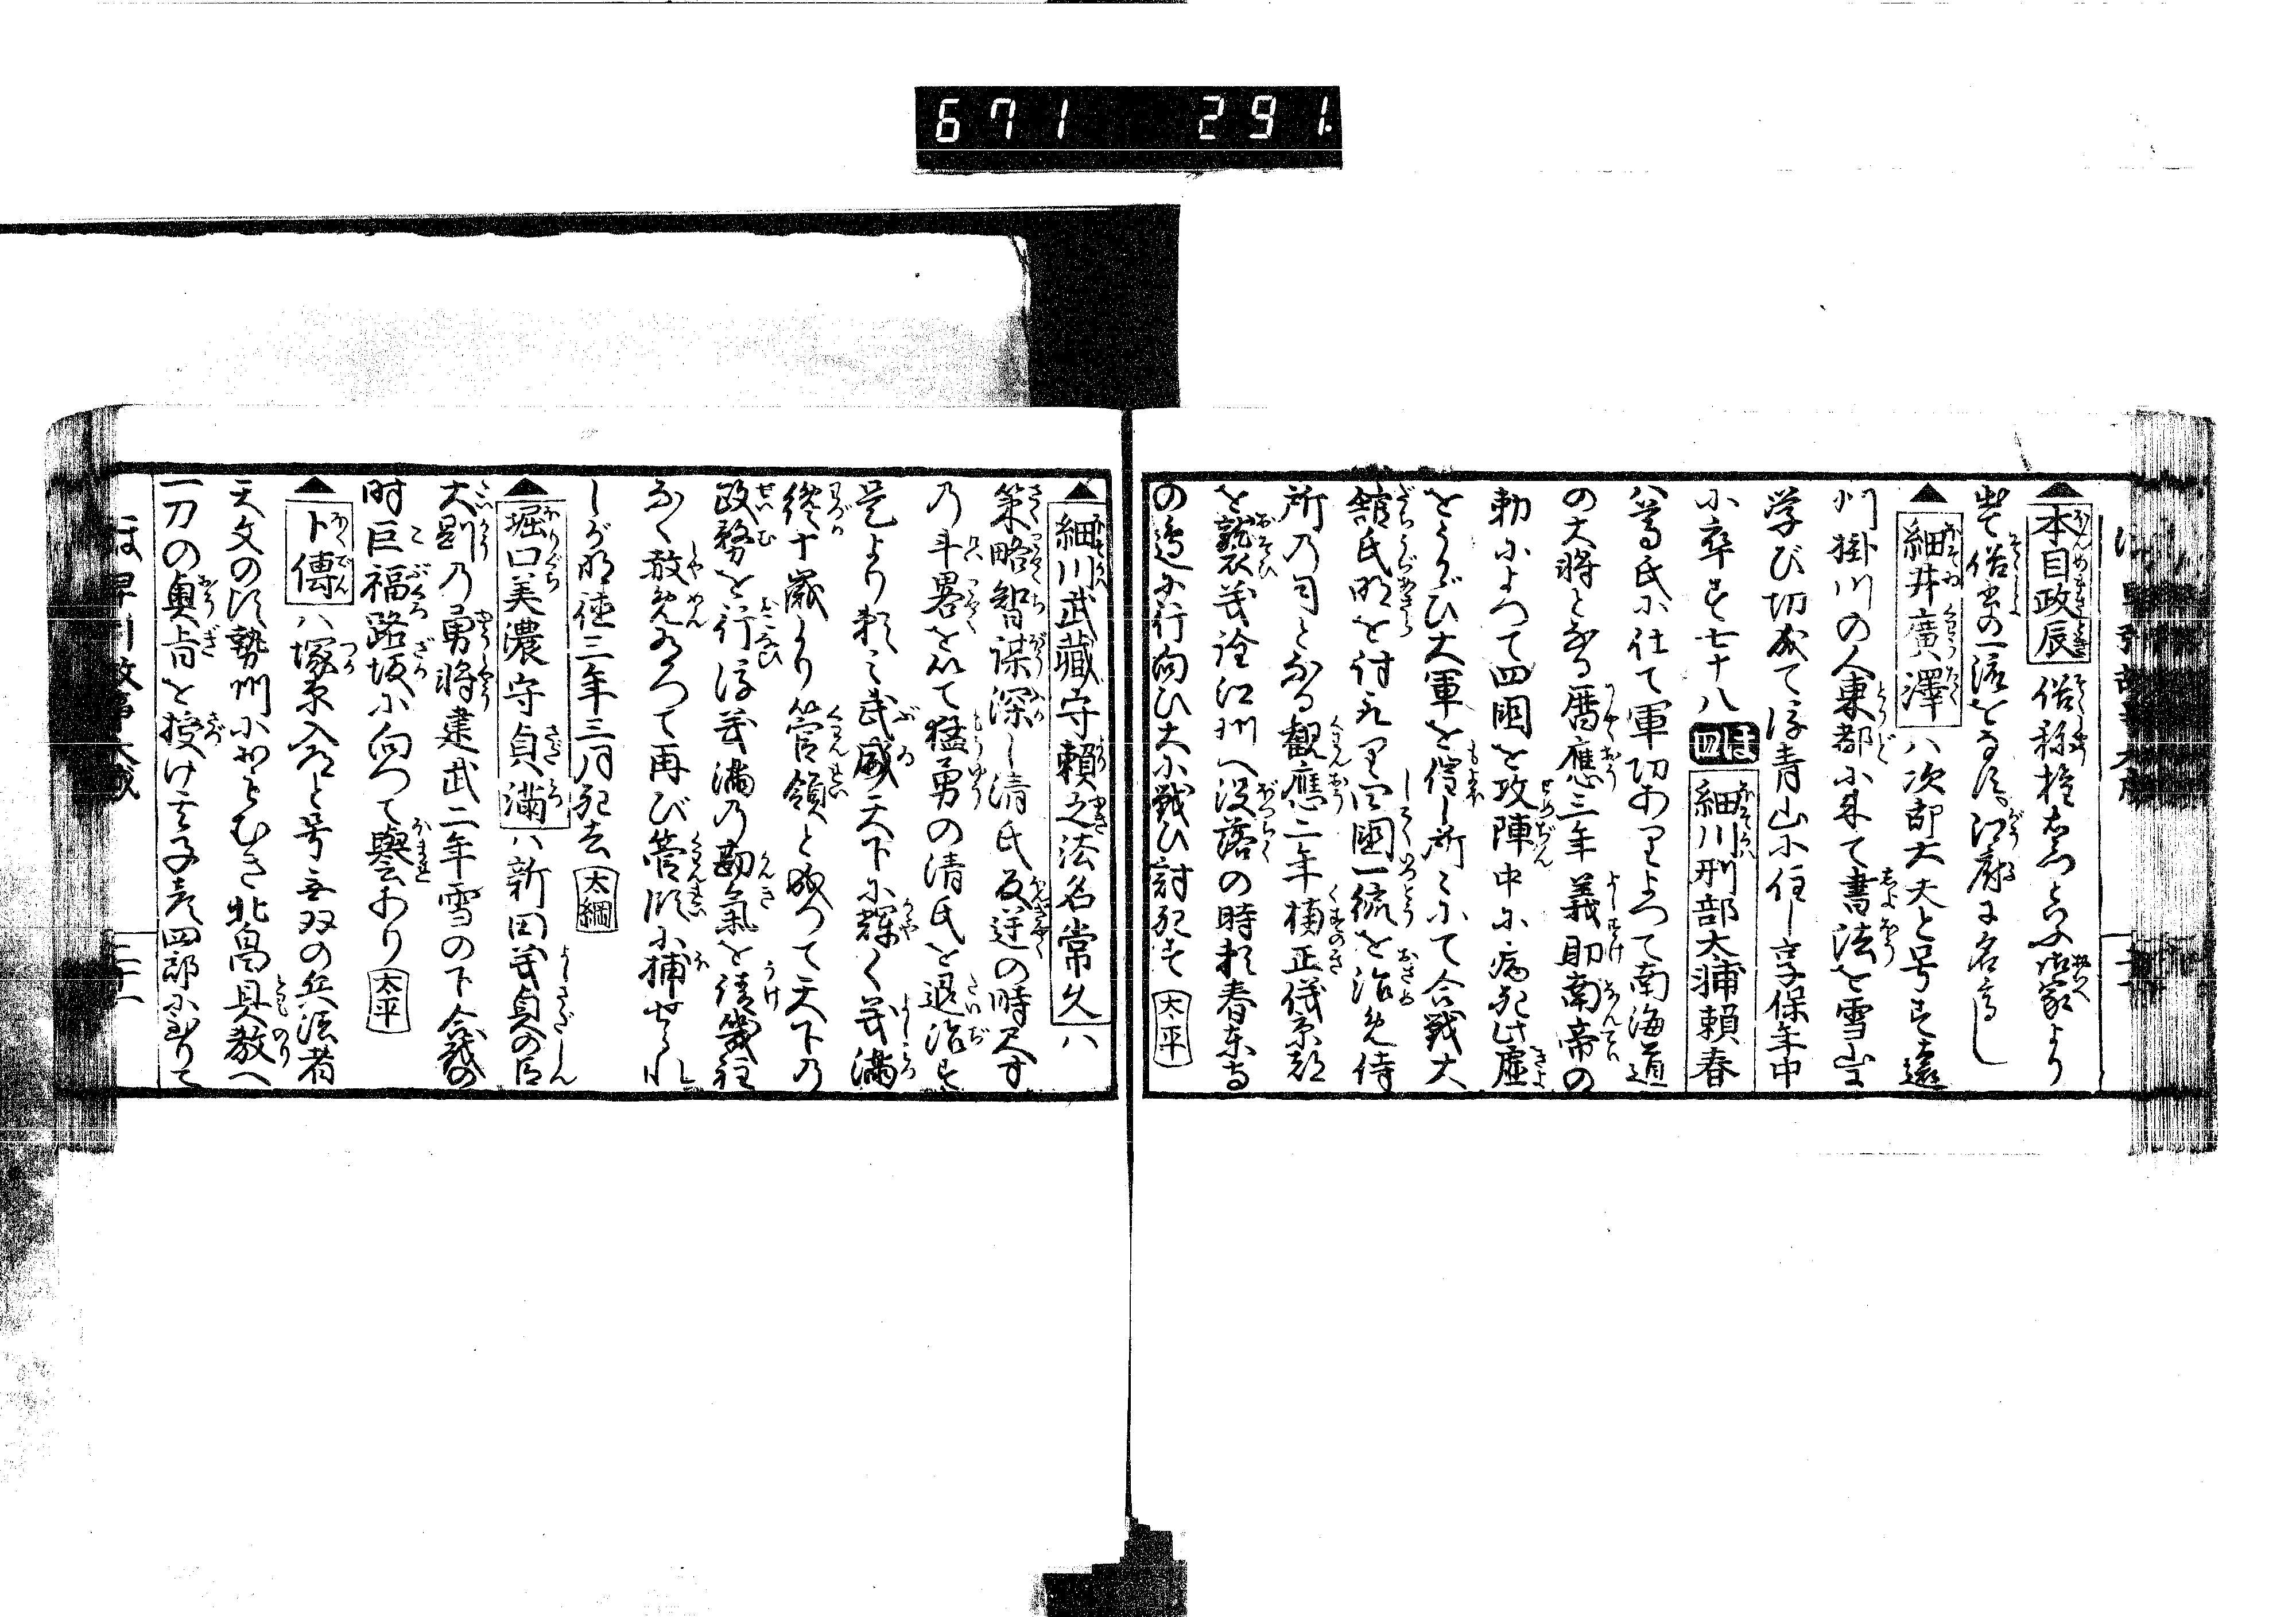 671 291
▲本目政辰 俗称権右衛門と云御家より
出て俗書の一流をなす江府に名高し
▲細井廣澤ハ次郎大夫と号す遠
州掛川の人東都小来て書法を雪山に
学び切成て浮青山小住し享保年中
小卒す七十八 細川刑部大輔頼春
ハ尊氏小仕て軍功ありよつて南海道
の大将となる暦應三年義助南帝の
勅によつて四国を攻陣中に病死此虚
をうかゞひ大軍を催し所々にて合戦大
舘氏明を討取り四国一統を治め侍
所乃司となる観應二年楠正儀京都
を襲義詮江州へ没落の時頼春東寺
の邉に行向ひ大小戦ひ討死す 太平
▲細川武藏守頼之法名常久ハ
策略智謀深し清氏反逆の時尺寸
乃斗畧を以て猛勇の清氏を退治す
是より頼之武威天下に輝く義満
纔十歳より管領と成つて天下乃
政務を行浮義満乃勘氣を請幾程
なく赦免有つて再び管領小補せられ
しが明徳三年三月死去 太綱
▲堀口美濃守貞満ハ新田義貞の臣
大剛乃勇将建武二年雪の下合戦の
時巨福路坂小向つて譽あり 太平
▲卜傳ハ塚原入道と号無双の兵法者
天文の頃勢州小おもむき北畠具教へ
一刀の奥旨を授け其子彦四郎に至りて